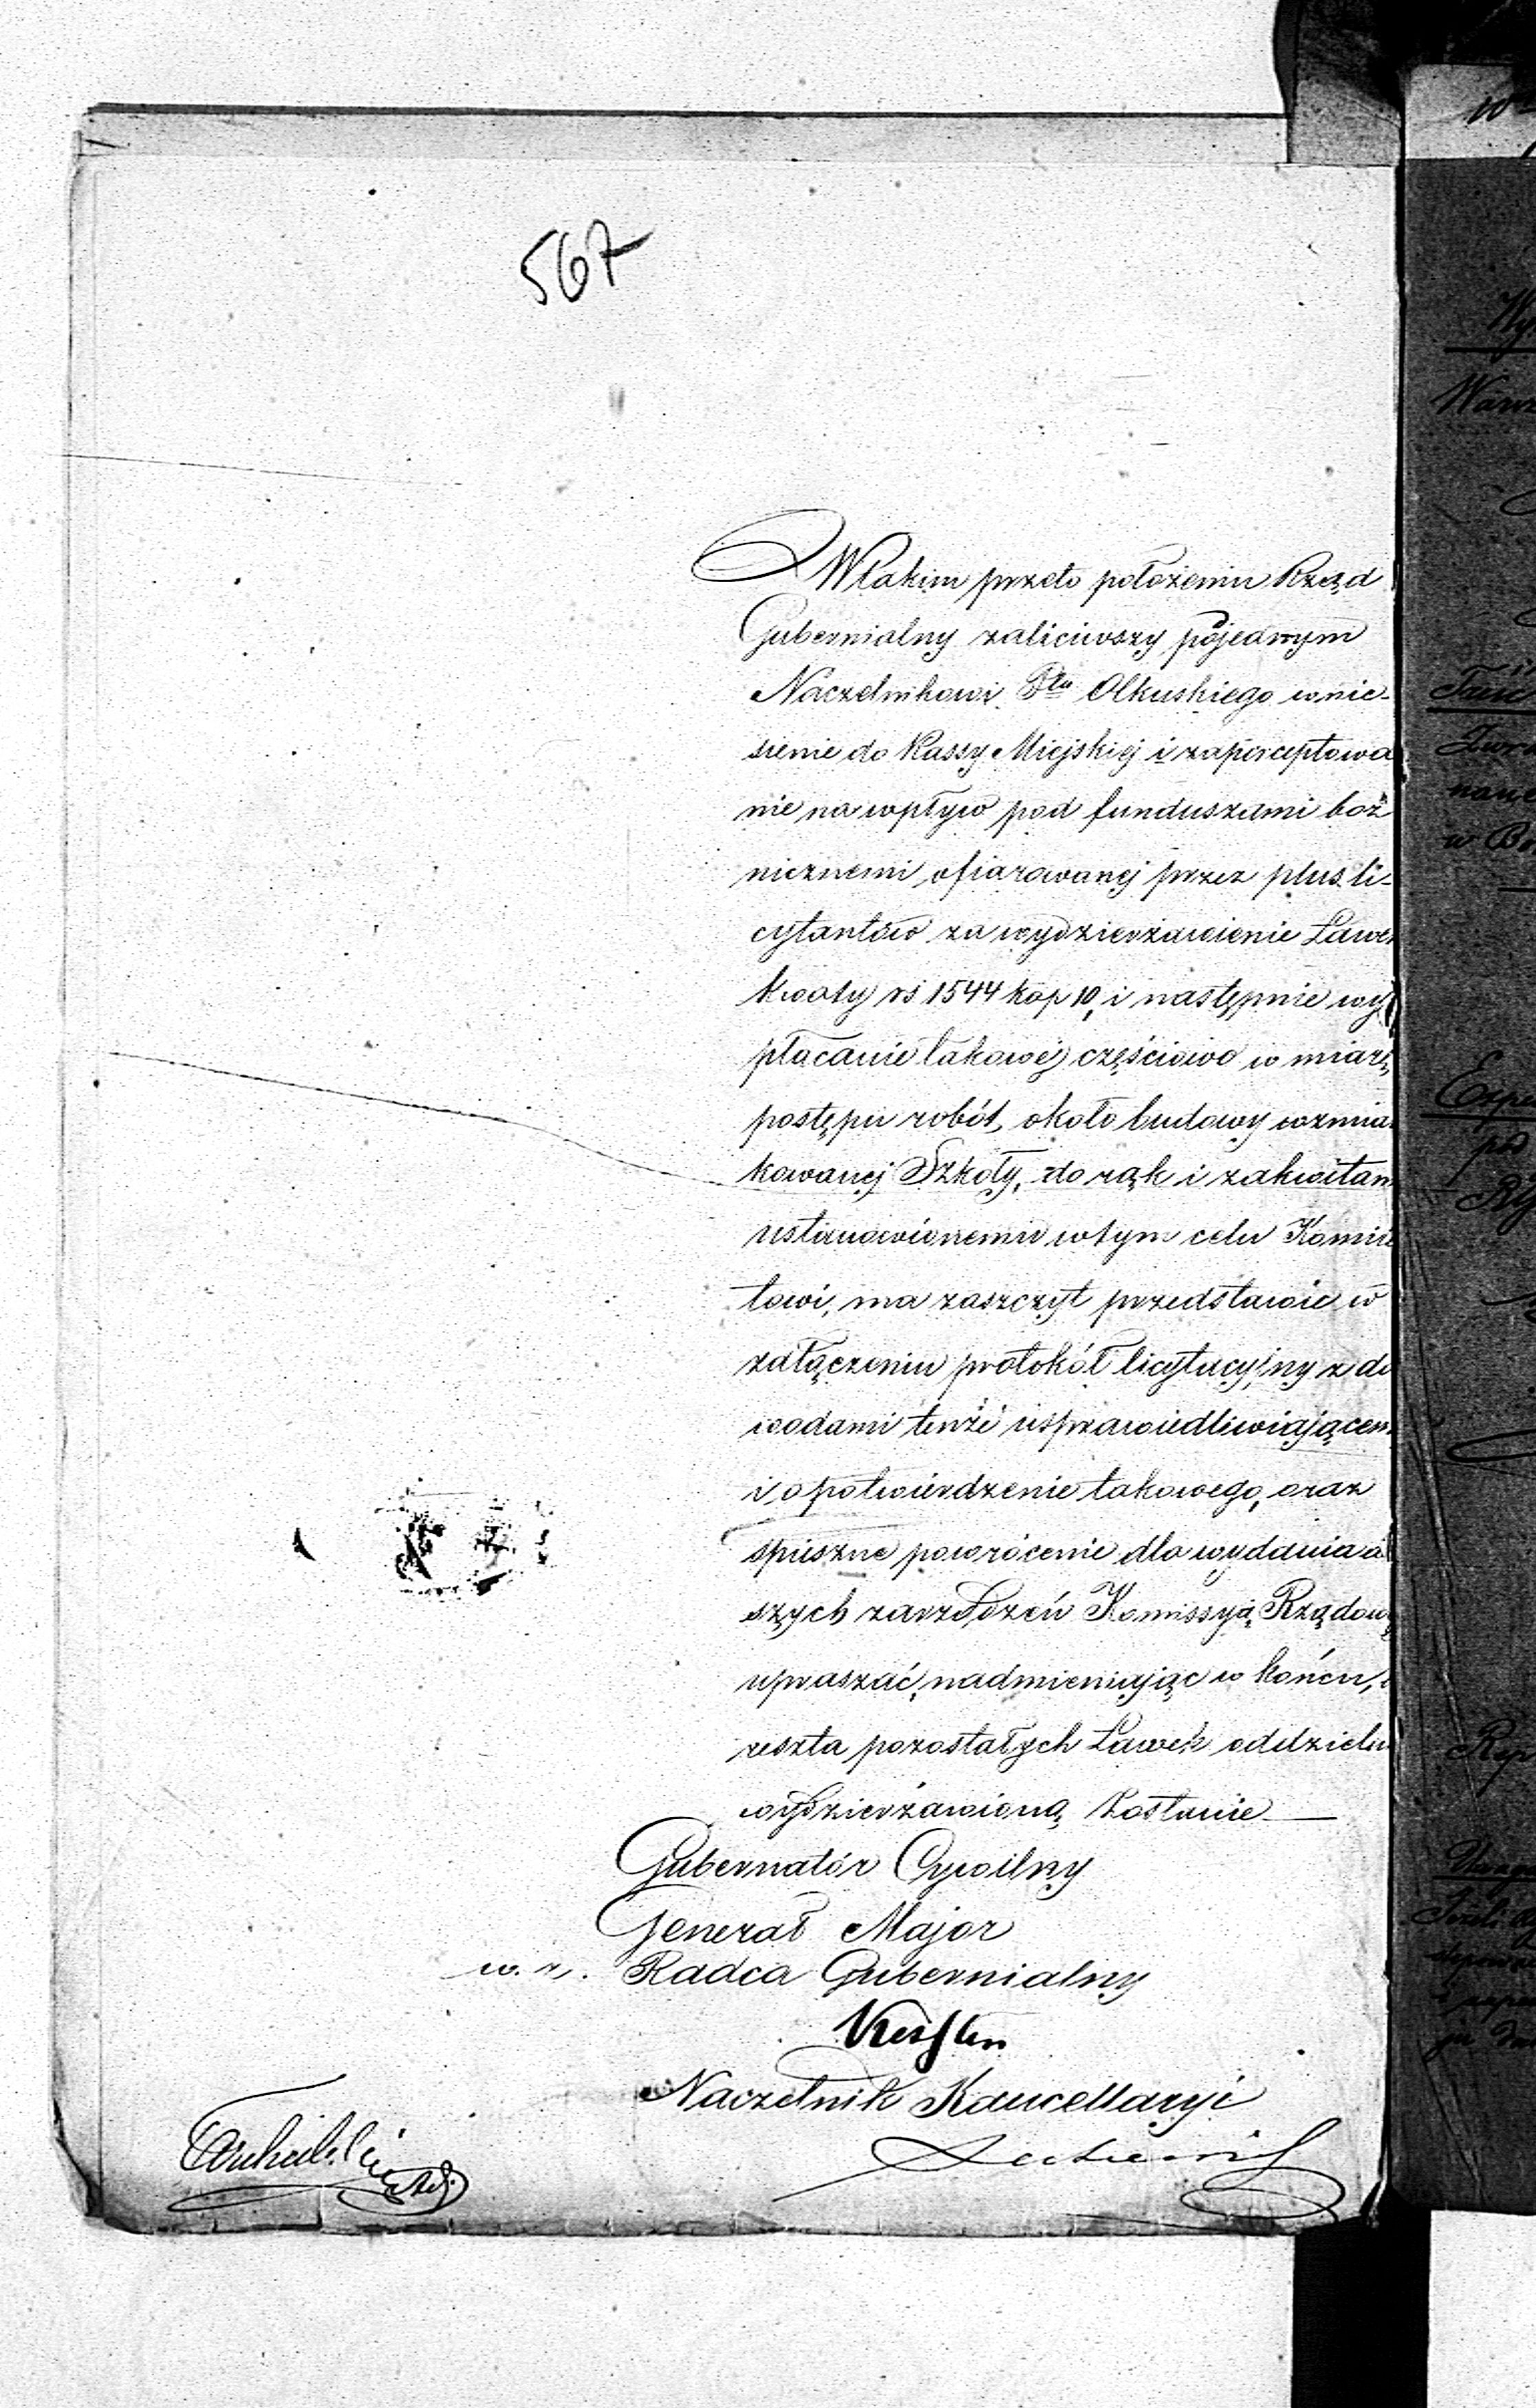 567
W takim przeto położeniu Rząd
Gubernialny zaliciwszy pojedynym
Naczelnikowi Ptu Olkuskiego wnie-
sienie do Kassy Miejskiej i zaperceptowa
nie na wpływ pod funduszami boż
nicznemi ofiarowanej przez plus li-
cytantów za wydzierżawienie Ławe
kwoty rs 1544 kop 10, i następnie wy
płacanie takowej częściowo w miarę
postępu robót, około budowy wzmia
kowanej Szkoły, do rąk i zakwitan
ustanowionemu w tym celu Komite
towi, ma zaszczyt przedstawić w
załączeniu protokół licytacyjny z do
wodami tenże usprawiedliwiającem
i o potwierdzenie takowego, oraz
spieszne powrócenie dla wydania dal
szych zarządzeń Komissyą Rządową
upraszać, nadmieniając w końcu,
reszta pozostałych Ławek oddzieln
wydzierżawioną zostanie
Gubernator Cywilny
Generał Major
w. z. Radca Gubernialny
Kersten
Naczelnik Kancellaryi